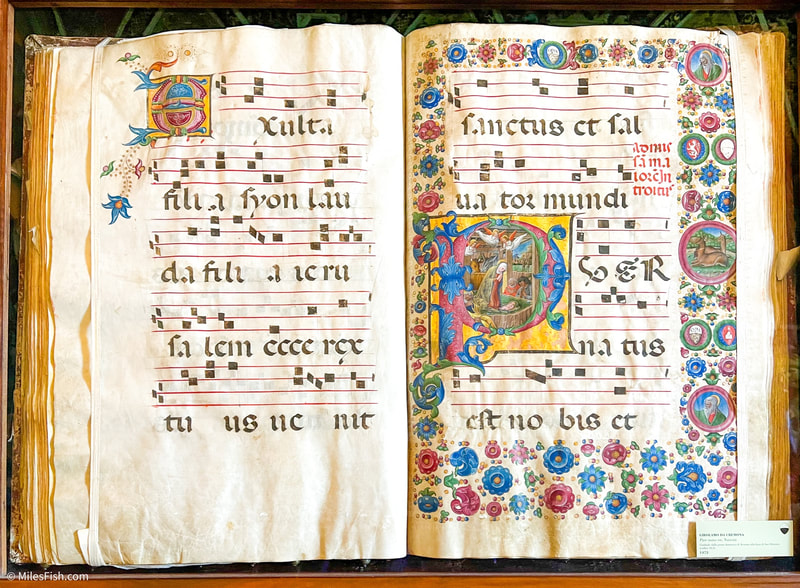 Exulta
fili a syon lau
da fili a ieru
sa lem ecce rex
tu us ue nit
sanctus et sal
ua tor mundi
ad mis
sa ma
iorē in
troitus
PVER
na tus
est no bis et
GIROLAMO DA CREMONA
1473
© MilesFish.com